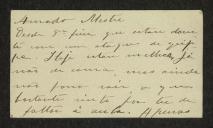 Amado Mestre
Desde 5ª feira que estou doen
te com um ataque de grip
pe. Hoje estou melhor, já
não de cama, mas ainda
não posso sair, o que
bastante sinto por ter de
faltar à aula.